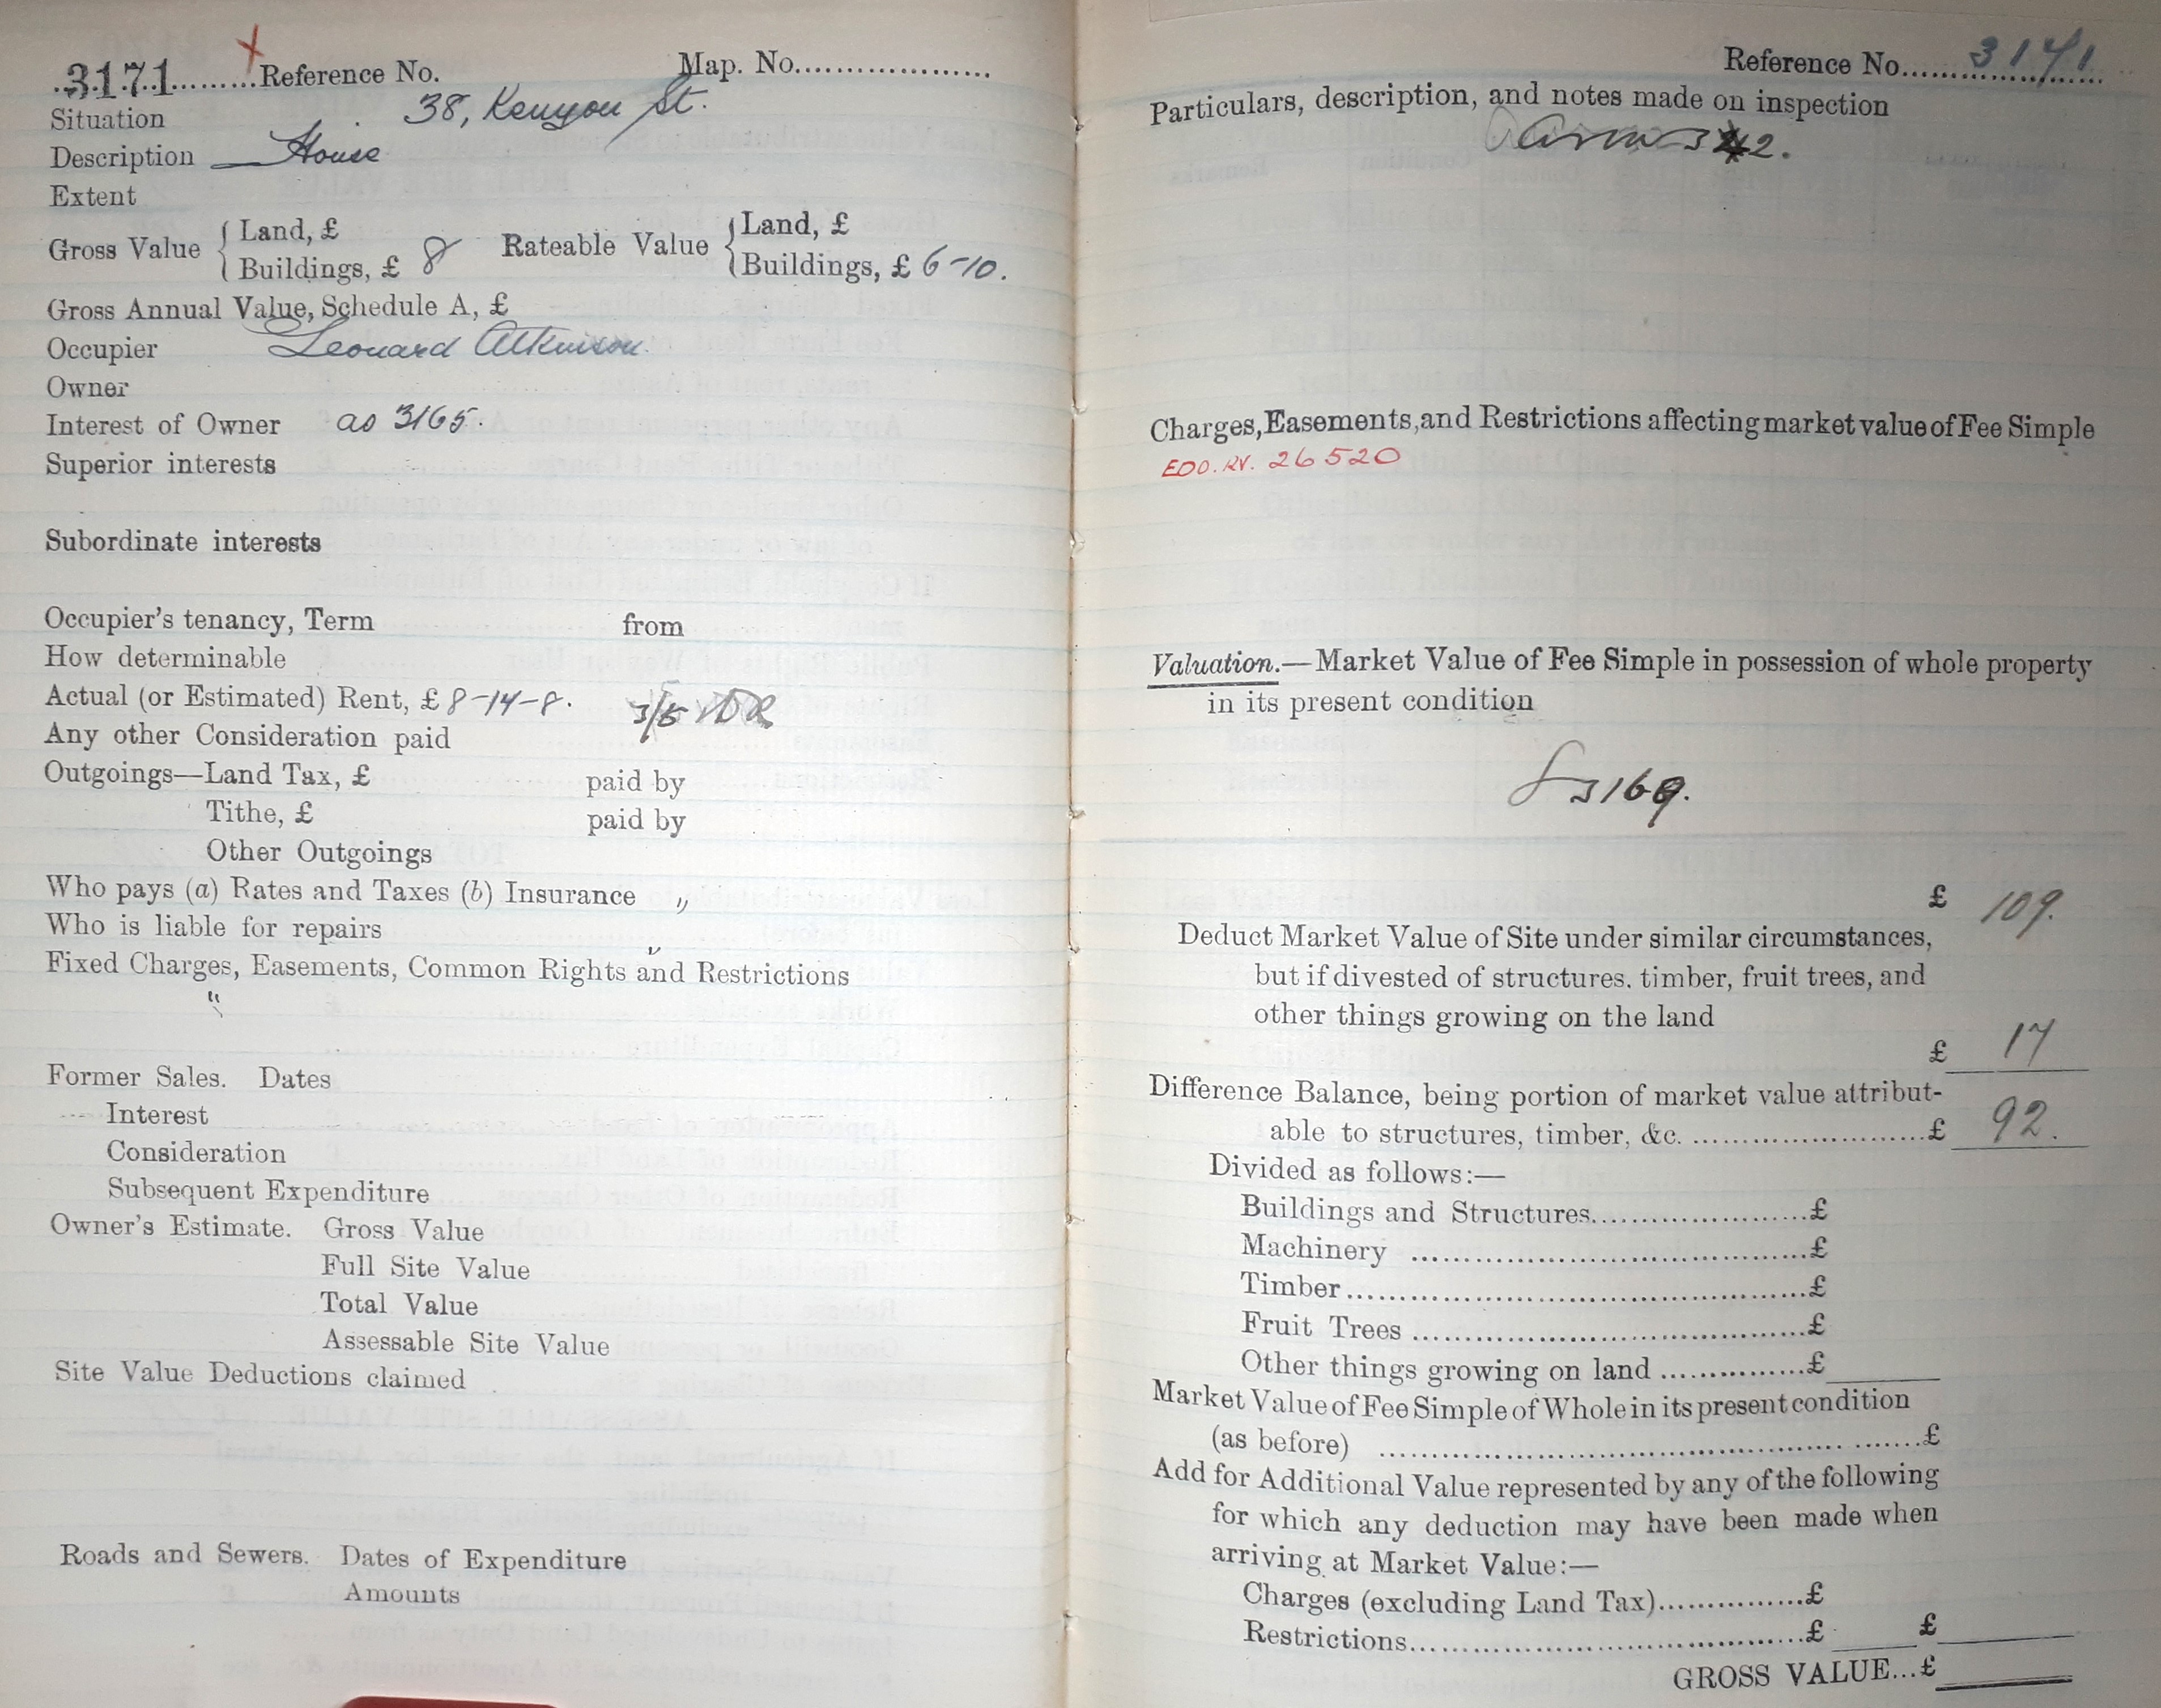 3171 Reference No. Map. No.
Situation 38, Kenyon St.
Description House
Extent
Gross Value { Land, £
Buildings, £ 8
Rateable Value { Land, £
Buildings, £ 6-10.
Gross Annual Value, Schedule A, £
Occupier Leonard Atkinson.
Owner
Interest of Owner as 3165.
Superior interests
Subordinate interests
Occupier's tenancy, Term from
How determinable
Actual (or Estimated) Rent, £ 8-14-8. 3/5
Any other Consideration paid
Outgoings—Land Tax, £ paid by
Tithe, £ paid by
Other Outgoings
Who pays (a) Rates and Taxes (b) Insurance "
Who is liable for repairs "
Fixed Charges, Easements, Common Rights and Restrictions
"
Former Sales. Dates
Interest
Consideration
Subsequent Expenditure
Owner's Estimate. Gross Value
Full Site Value
Total Value
Assessable Site Value
Site Value Deductions claimed
Roads and Sewers. Dates of Expenditure
Amounts
Reference No. 3171
Particulars, description, and notes made on inspection
Charges, Easements, and Restrictions affecting market value of Fee Simple
EDO. RV. 26520
Valuation.—Market Value of Fee Simple in possession of whole property
in its present condition
3169.
£ 109.
Deduct Market Value of Site under similar circumstances,
but if divested of structures. timber, fruit trees, and
other things growing on the land
£ 17
Difference Balance, being portion of market value attribut-
able to structures, timber, &c. £ 92.
Divided as follows:—
Buildings and Structures £
Machinery £
Timber £
Fruit Trees £
Other things growing on land £
Market Value of Fee Simple of Whole in its present condition
(as before) £
Add for Additional Value represented by any of the following
for which any deduction may have been made when
arriving at Market Value:—
Charges (excluding Land Tax) £
Restrictions £ £
GROSS VALUE... £